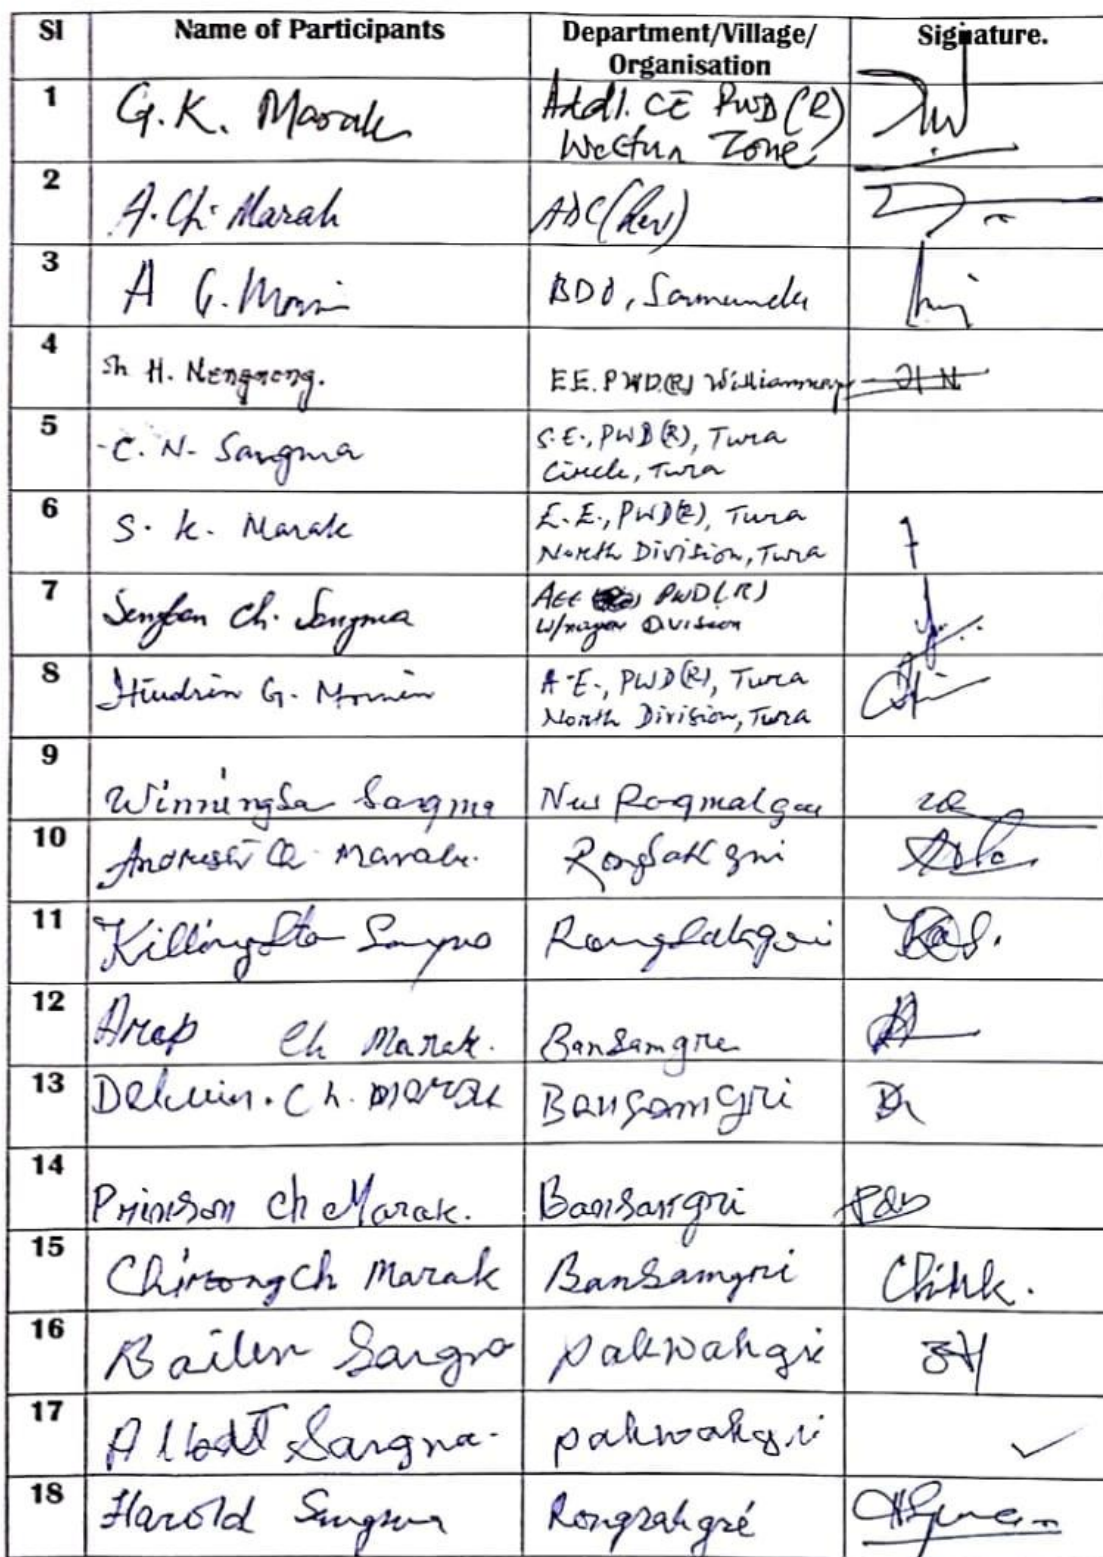 Sl Name of Participants Department/Village/ Signature.
Organisation
1 G.K. Marak Addl. CE PWD (R)
Western Zone
2 A. Ch. Marak ADC (Rev)
3 A G. Momin BDO, Samanda
4 Sh H. Nengnong. E.E. PWD(R) Williamnagar H N
5 C. N. Sangma S.E., PWD (R), Tura
Circle, Tura
6 S. K. Marak E.E., PWD(R), Tura
North Division, Tura
7 Ch. Sangma AEE PWD (R)
W/nagar Division
8 G. Momin A.E., PWD(R), Tura
North Division, Tura
9 Winningsa Sangma New
10 Marak. Rongsakgri
11 Killingsta Sangma Rongsakgri
12 Arap Ch Marak. Bansamgre
13 Delwin. Ch. Marak Bansamgri
14 Prinson Ch Marak. Bansamgri
15 Chirong Ch Marak Bansamgri
16 Bailen Sangma pakwakgri
17 Sangma. pakwakgri
18 Harold Sangma Rongsakgre